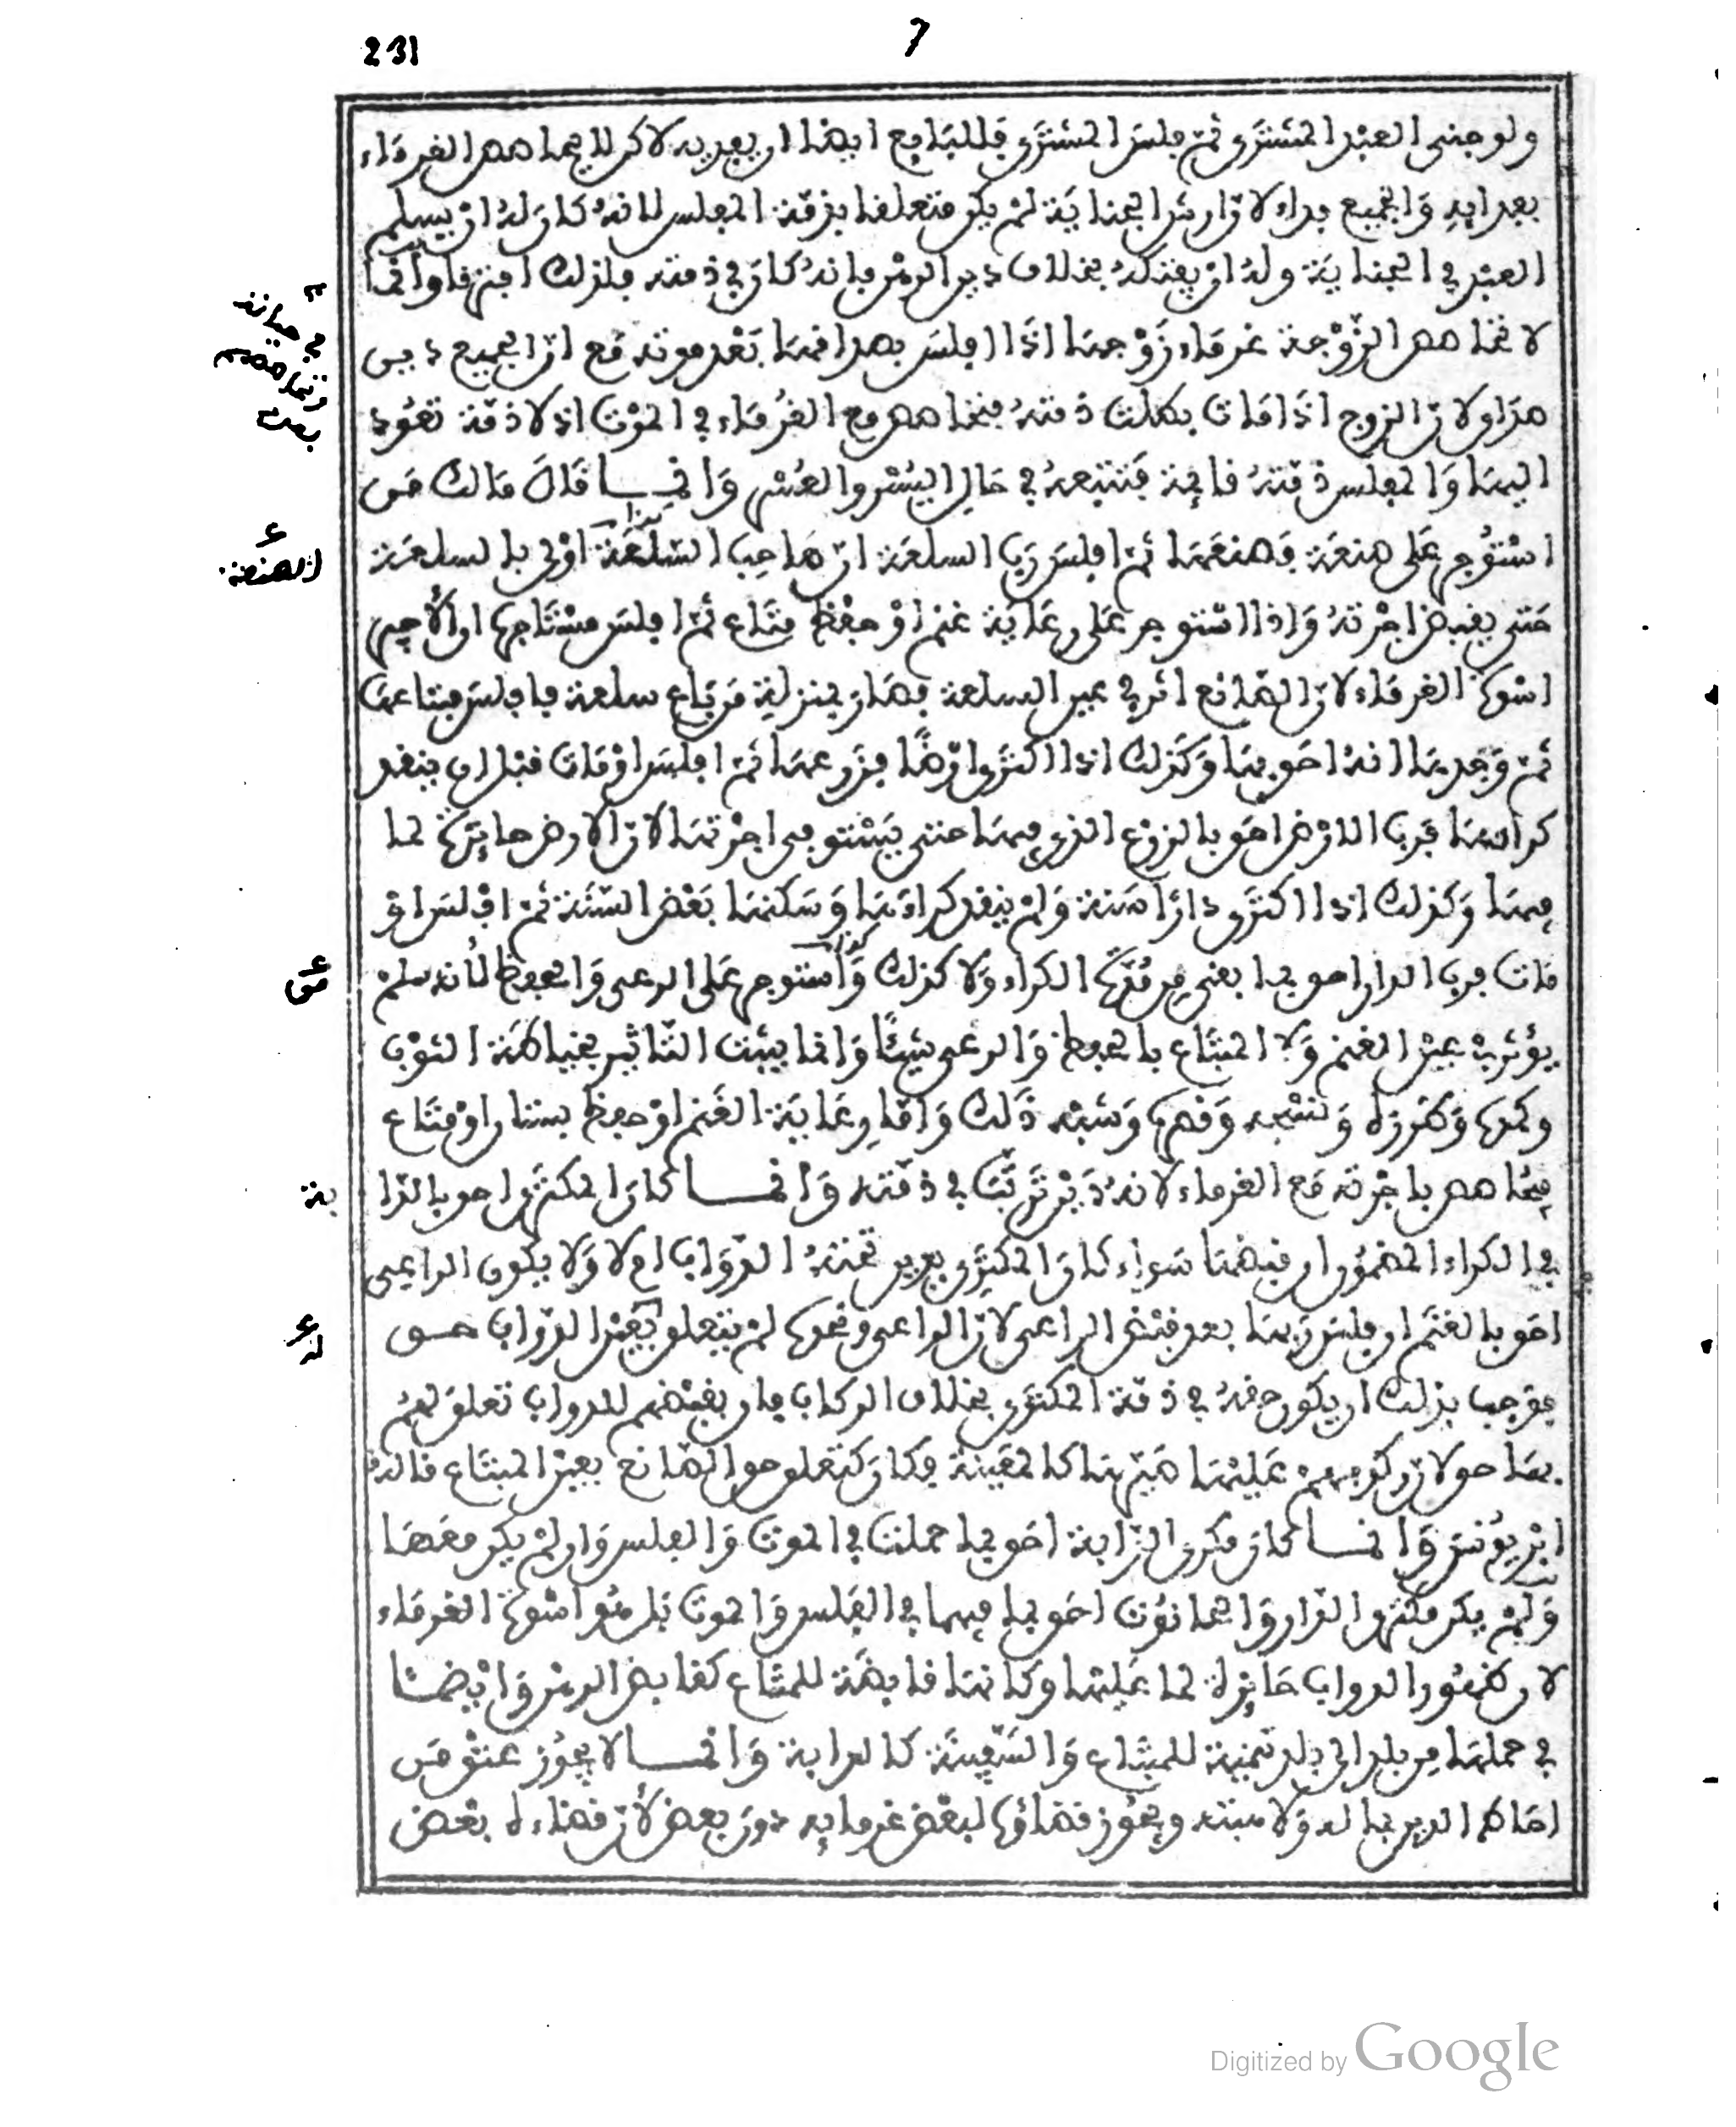 231
7
ولو جنى العبد المشترى ثم فلس المشترى فللبايع ايضا ان يفديه لاكن لا يحاصص الغرماء
بفدايه والجميع فداء لان ارش الجناية لم يكن متعلقا بذمة المفلس لانه كان له ان يسلم
العبد في الجناية وله ان يفتكه بخلاف دين الرهن فإنه كان في ذمته فلذلك افترقا وانما
لا تحاصص الزوجة غرماء زوجها اذا افلس بصداقها بعد موته مع ان الجميع دين
هذا ولان الزوج اذا مات بطلت ذمته فتحاصص مع الغرماء في الموت اذ لا ذمة تعود
اليها والمفلس ذمته قايمة فتتبعه في حال اليسر والعسر وانما قال مالك من
استؤجر على صنعة فصنعها ثم افلس رب السلعة ان صاحب السلعة اولى بالسلعة
حتى يقبض اجرته واذا استوجر على رعاية غنم او حفظ متاع ثم افلس مستاجره ان الاجير
اسوة الغرماء لان الصانع اثر في عين السلعة فصار بمنزلة من باع سلعة فافلس مبتاعها
ثم وجد بها انه احق بها وكذلك اذا اكترى ارضا فزرعها ثم افلس او مات قبل ان ينقد
كراءها فرب الارض احق بالزرع الذي فيها حتى يستوفي اجرتها لان الارض حايزة لما
فيها وكذلك اذا اكترى دارا سنة ولم ينقد كراءها وسكنها بعض السنة ثم افلس او
مات فرب الدار احق بما بقي من مدة الكراء ولا كذلك واستوجر على الرعي والحفظ لانه لم
يؤثر في عين الغنم ولا المتاع بالحفظ والرعي شيئا وانما يثبت التاثير بخياطة الثوب
وكمده وطرزه ونسجه وقصره وشبه ذلك واما رعاية الغنم او حفظ بستان او متاع
فيحاصص باجرته مع الغرماء لانه دين ترتب في ذمته وانما كان المكترى احق بالدا
في الكراء المضمون ان قبضها سواء كان المكترى يدير تحته الدواب ام لا ولا يكون الراعي
احق بالغنم ان فلس ربها بعد قبض الراعي لان الراعي ونحوه لم يتعلق بعين الدواب حق
فوجب بذلك ان يكون حقه في ذمة المكترى بخلاف الركاب فان بقبضهم للدواب تعلق لهم
بها حق لان ركوبهم عليها صيرها كالمعينة فكان كتعلق حق الصانع بعين المتاع قاله
ابن يونس وانما كان مكري الدابة احق بما حملت في الموت والفلس وان لم يكن معها
ولم يكن مكترى الدار والحانوت احق بما فيهما في الفلس والموت بل هو اسوة الغرماء
لان ظهور الدواب حايزة لما عليها وكانها قابضة للمتاع كقابض الرهن وايضا
في حملها من بلد الى بلد تنمية للمتاع والسفينة كالدابة وانما لا يجوز عتق من
احاط الدين بماله ولا هبته ويجوز قضاؤه لبعض غرمايه دون بعض لان قضاءه بعض
في حياته
وتحاصصهم
بعد
الصنعة
من
بة
له
Digitized by Google